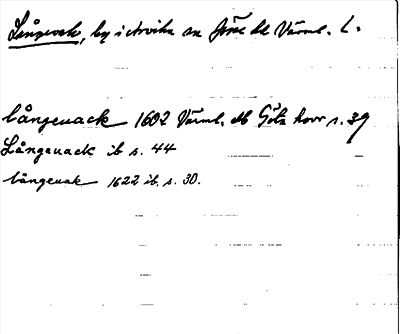 Långvak, by i Arvika sn Jösse hd Värml. L.
långeuack 1602 Värml. db Göta hovr s. 39
Långeuack ib s. 44
långeuak 1622 ib. s. 30.